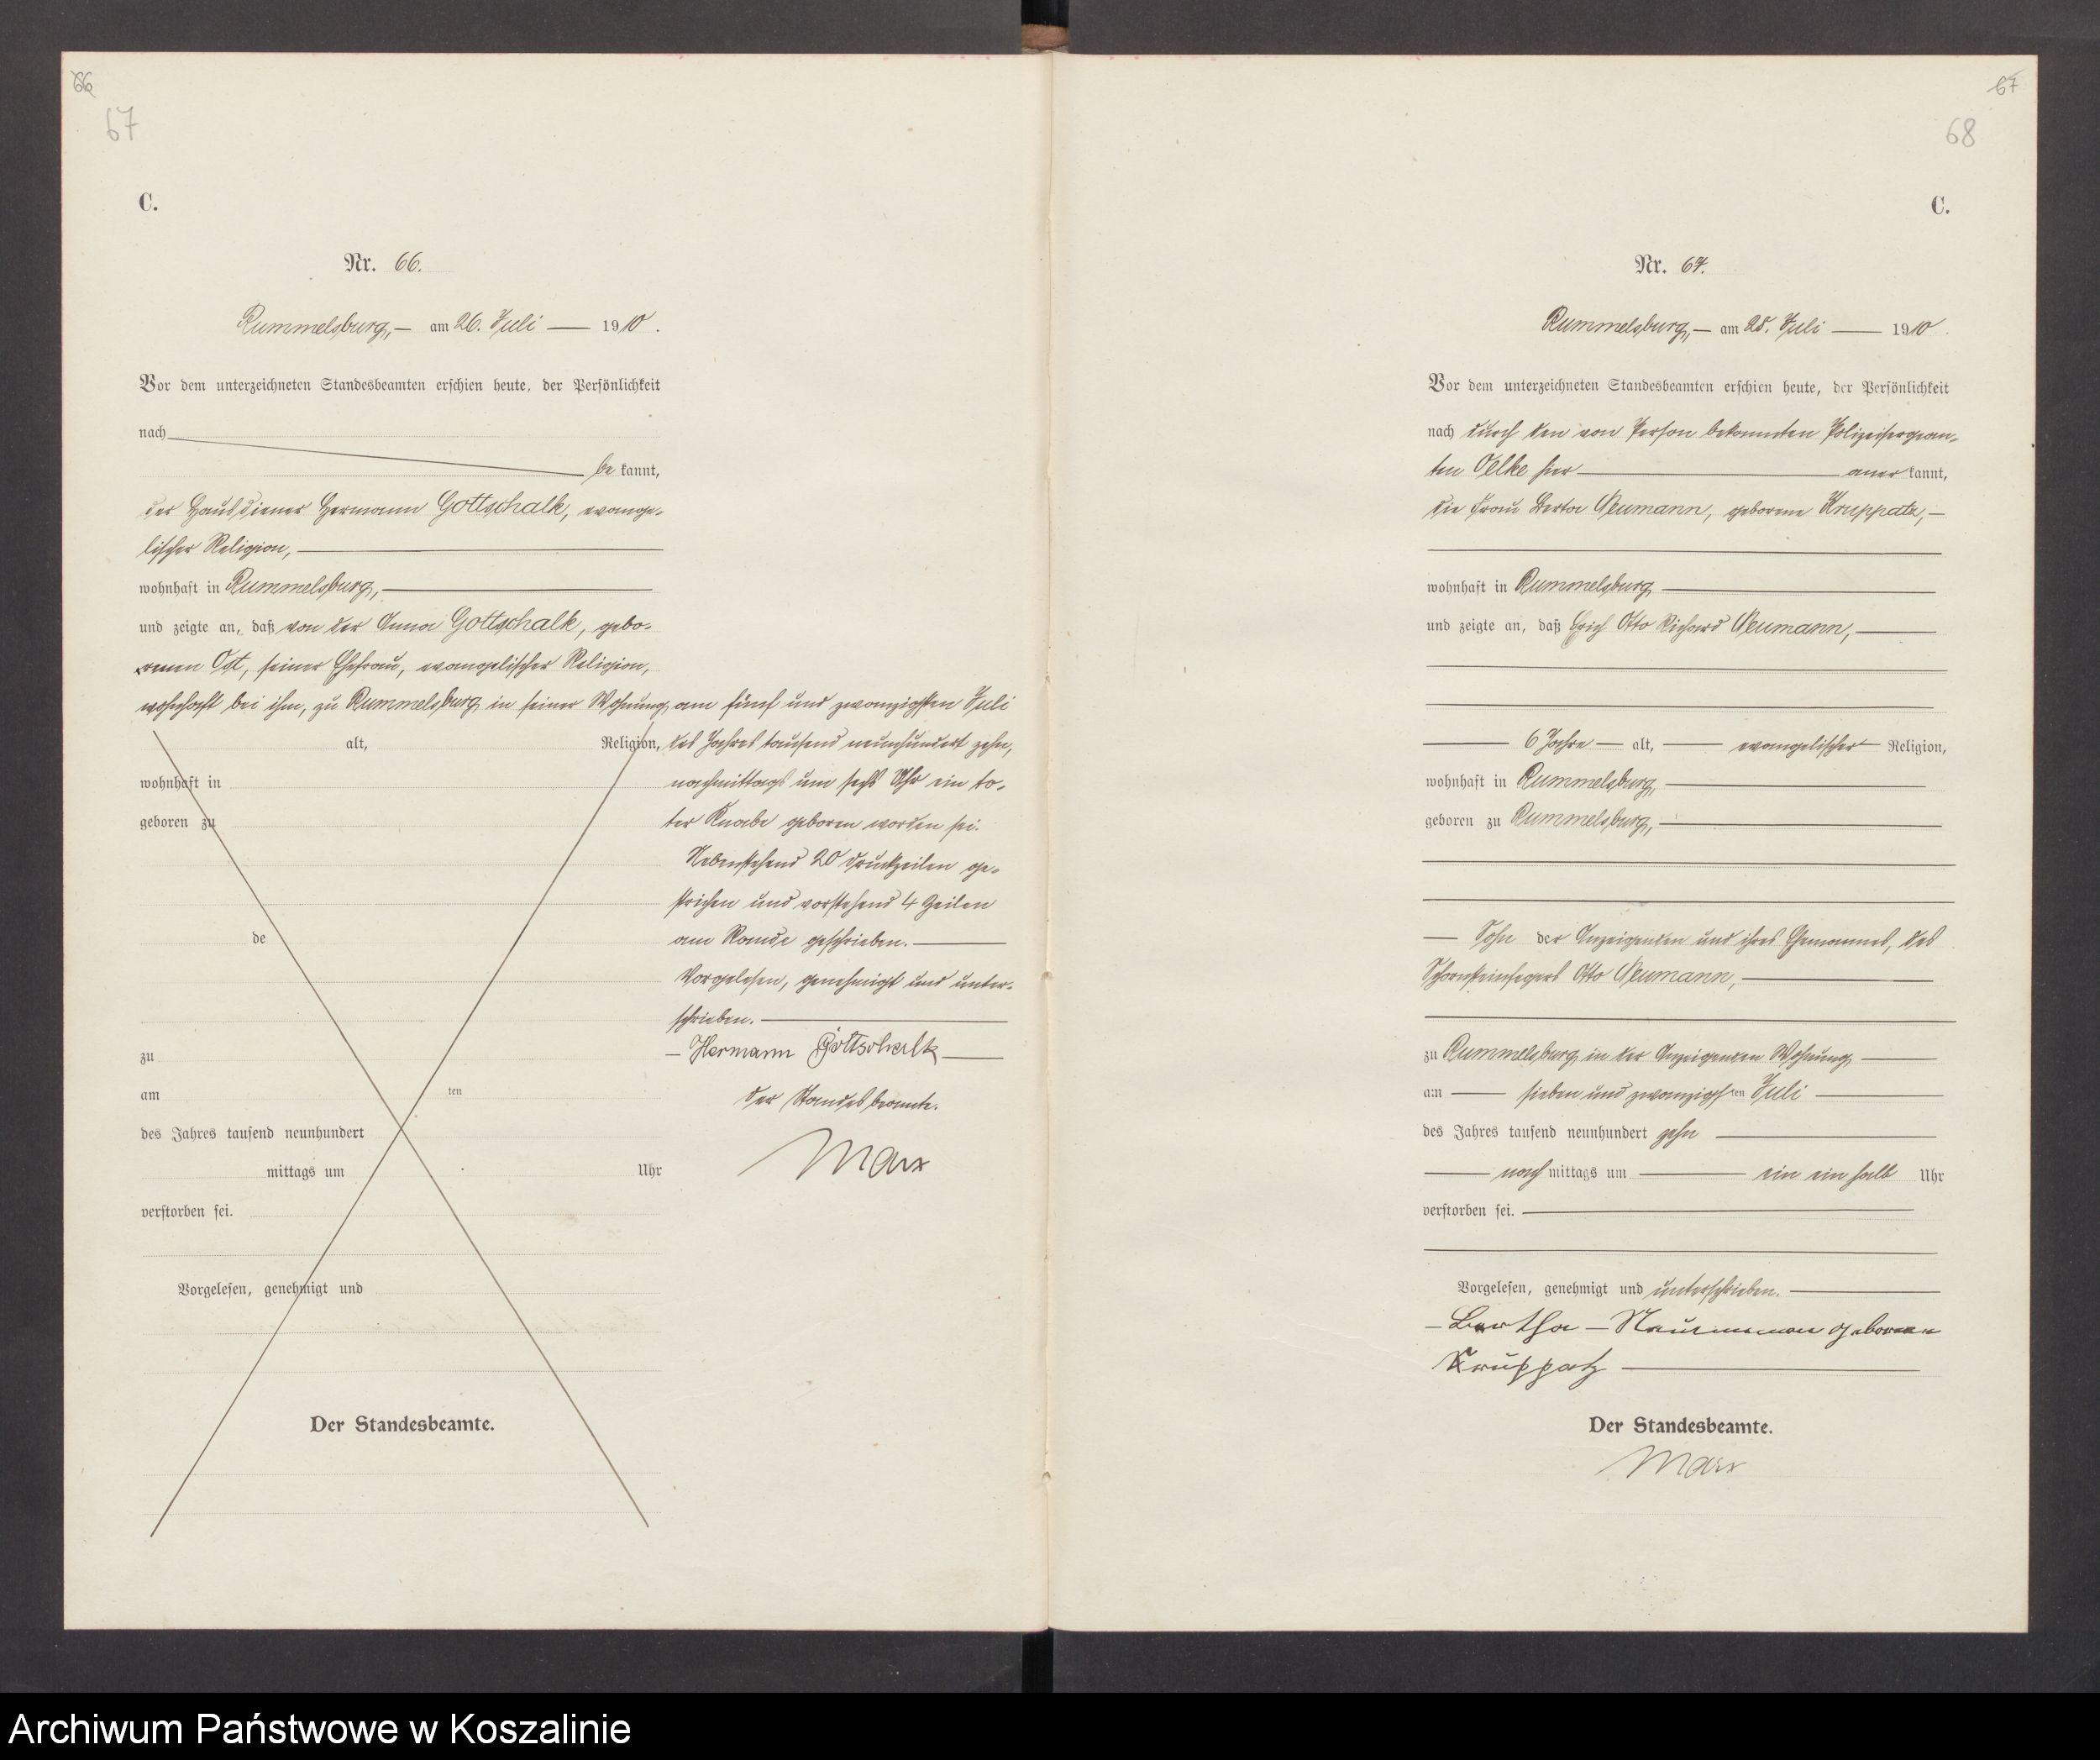 66
67
C.
Nr. 66.
Rummelsburg, am 26. Juli 1910.
Vor dem unterzeichneten Standesbeamten erschien heute, der Persönlichkeit
nach
be kannt,
der Hausdiener Hermann Gottschalk, evange-
lischer Religion,
wohnhaft in Rummelsburg,
und zeigte an, daß von der Anna Gottschalk, gebo-
renen Ost, seiner Ehefrau, evangelischer Religion,
wohnhaft bei ihm, zu Rummelsburg in seiner Wohnung, am fünf und zwanzigsten Juli
alt, Religion, des Jahres tausend neunhundert zehn,
wohnhaft in nachmittags um sechs Uhr ein to-
geboren zu ter Knabe geboren worden sei.
Nebenstehend 20 Druckzeilen ge-
strichen und vorstehend 4 Zeilen
de am Rande geschrieben.
Vorgelesen, genehmigt und unter-
schrieben.
zu Hermann Gottschalk
am ten Der Standesbeamte.
des Jahres tausend neunhundert
mittags um Uhr Marx
verstorben sei.
Vorgelesen, genehmigt und
Der Standesbeamte.
67
68
C.
Nr. 67.
Rummelsburg, am 28. Juli 1910.
Vor dem unterzeichneten Standesbeamten erschien heute, der Persönlichkeit
nach durch den von Person bekannten Polizeisergean-
ten Oelke hier aner kannt,
die Frau Berta Neumann, geborene Kruppatz,
wohnhaft in Rummelsburg
und zeigte an, daß Erich Otto Richard Neumann,
6 Jahre alt, evangelischer Religion,
wohnhaft in Rummelsburg,
geboren zu Rummelsburg,
Sohn der Anzeigenden und ihres Ehemannes, des
Schornsteinfegers Otto Neumann,
zu Rummelsburg in der Anzeigenden Wohnung,
am sieben und zwanzigsten Juli
des Jahres tausend neunhundert zehn
nach mittags um ein ein halb Uhr
verstorben sei.
Vorgelesen, genehmigt und unterschrieben.
Bertha Neumann geborene
Kruppatz
Der Standesbeamte.
Marx
Archiwum Państwowe w Koszalinie